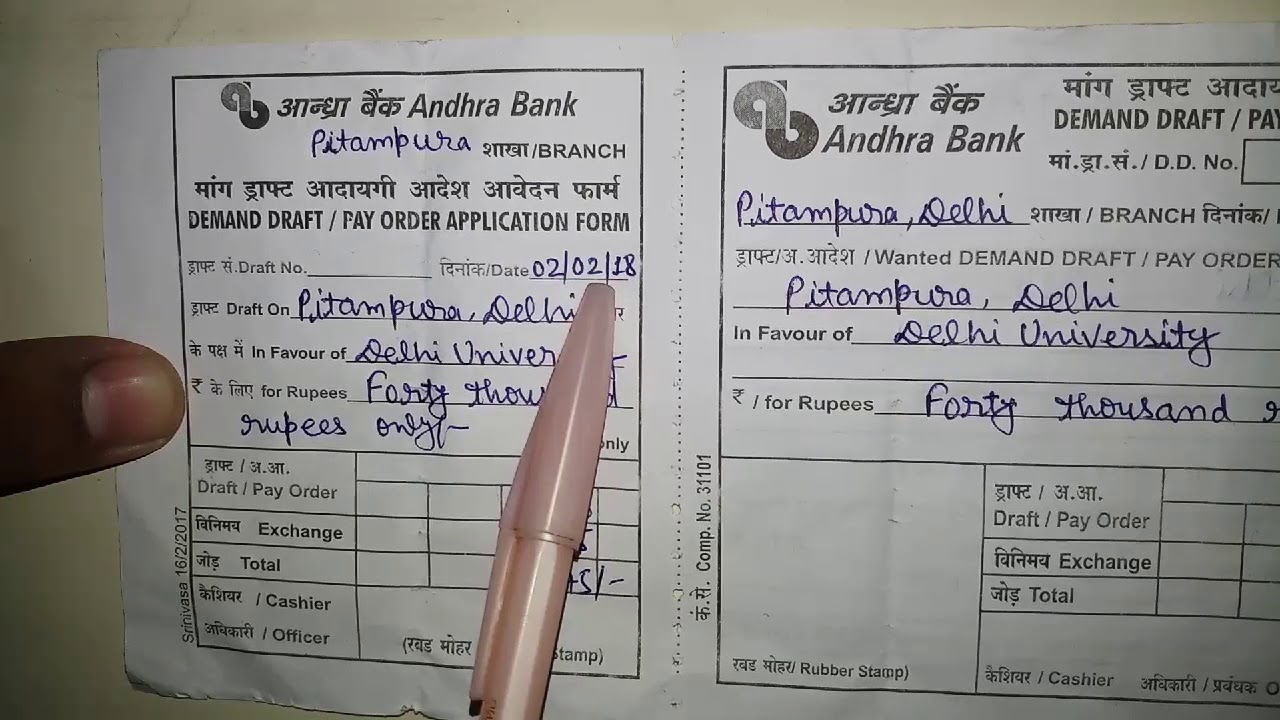 आन्ध्रा बैंक Andhra Bank
Pitampura शाखा/BRANCH
मांग ड्राफ्ट आदायगी आदेश आवेदन फार्म
DEMAND DRAFT / PAY ORDER APPLICATION FORM
ड्राफ्ट सं.Draft No. दिनांक/Date 02/02/18
ड्राफ्ट Draft On Pitampura, Delhi
के पक्ष में In Favour of Delhi
₹ के लिए for Rupees Forty
rupees only/- only
ड्राफ्ट / अ.आ.
Draft / Pay Order
विनिमय Exchange
जोड़ Total
कैशियर / Cashier
अधिकारी / Officer (रबड मोहर Stamp)
Srinivasa 16/2/2017
आन्ध्रा बैंक
Andhra Bank
मांग ड्राफ्ट
DEMAND DRAFT / PAY
मां.ड्रा.सं./ D.D. No.
Pitampura, Delhi शाखा / BRANCH दिनांक/
ड्राफ्ट/अ. आदेश / Wanted DEMAND DRAFT / PAY ORDER
Pitampura, Delhi
In Favour of Delhi University
₹ / for Rupees Forty thousand
कं.से. Comp. No. 31101
ड्राफ्ट / अ.आ.
Draft / Pay Order
विनिमय Exchange
जोड़ Total
रबड मोहर/ Rubber Stamp) कैशियर / Cashier अधिकारी / प्रबंधक